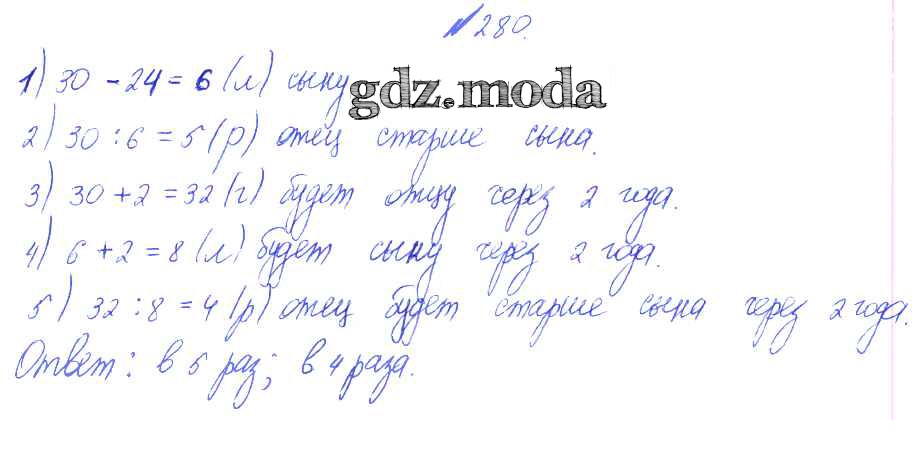 №280.
1) 30 - 24 = 6 (л) сыну
gdz.moda
2) 30 : 6 = 5 (р) отец старше сына.
3) 30 + 2 = 32 (г) будет отцу через 2 года.
4) 6 + 2 = 8 (л) будет сыну через 2 года.
5) 32 : 8 = 4 (р) отец будет старше сына через 2 года.
Ответ: в 5 раз; в 4 раза.